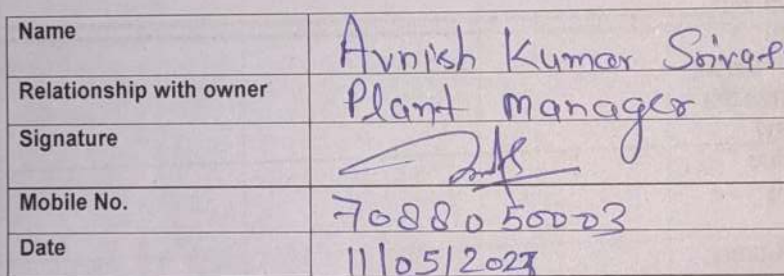 Name Avnish Kumar
Relationship with owner Plant manager
Signature
Mobile No. 7088050003
Date 11/05/202